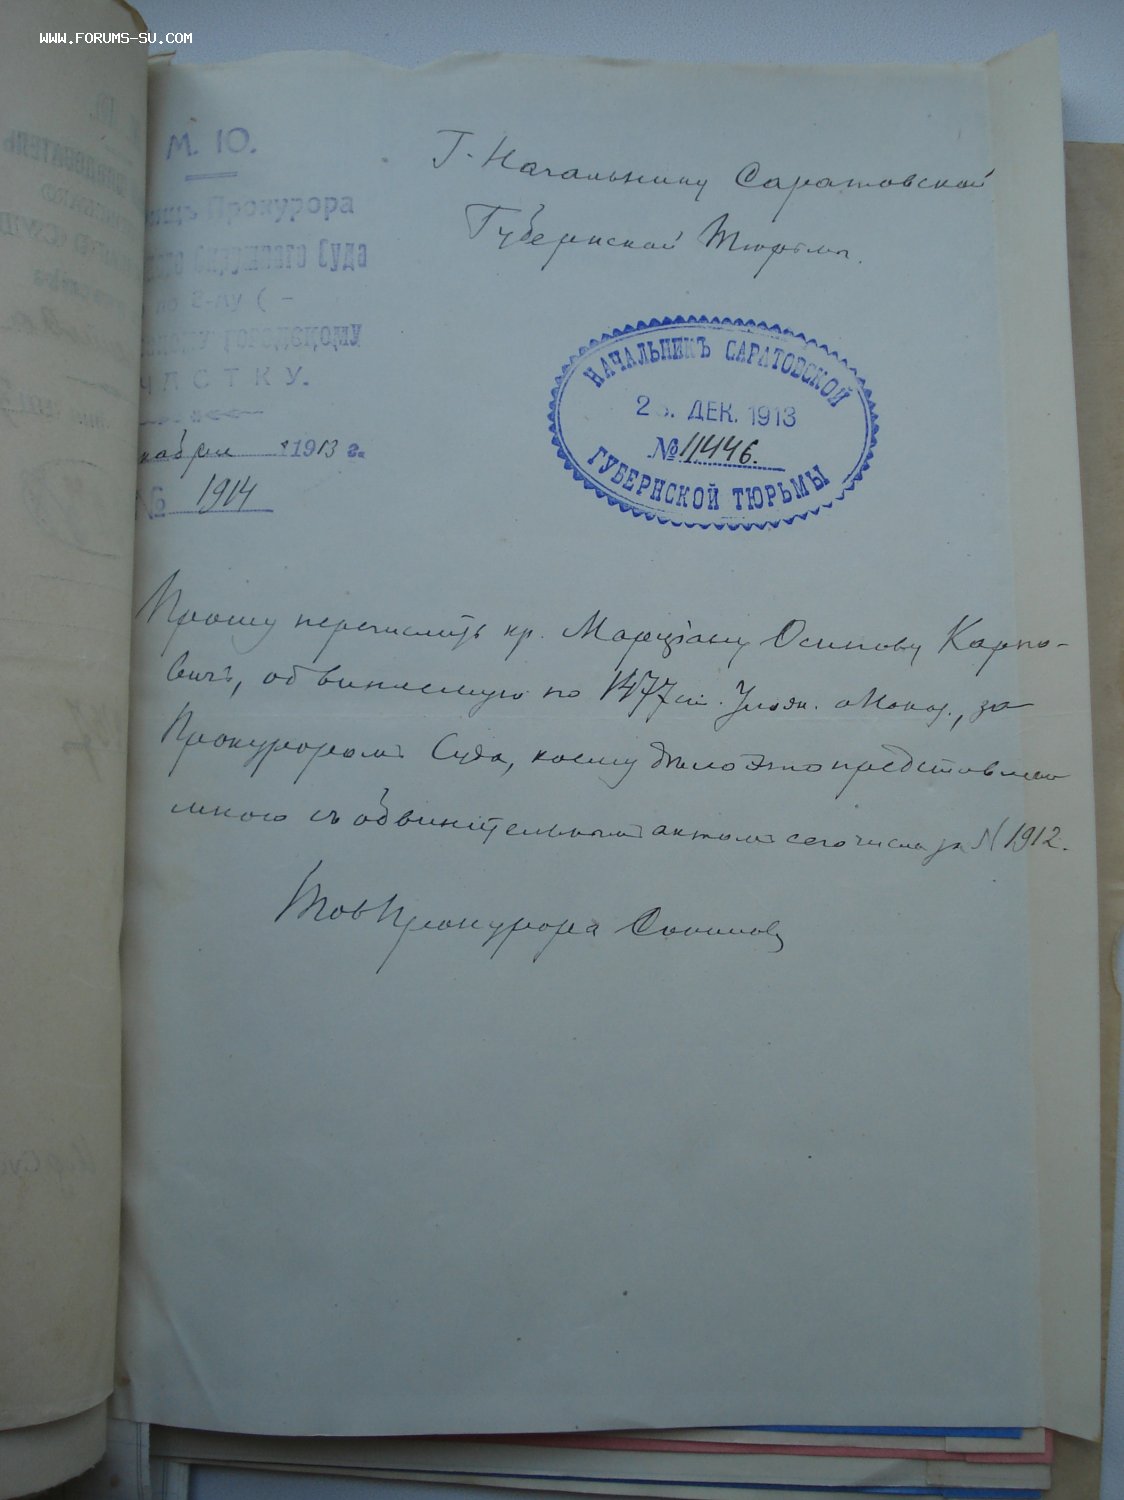 WWW.FORUMS-SU.COM
М. Ю.
Прокурора
Окружнаго Суда
по 2-му
городскому
УЧАСТКУ.
кабря 1913 г.
№ 1914
Г. Начальнику Саратовской
Губернской Тюрьмы.
НАЧАЛЬНИКЪ САРАТОВСКОЙ
ДЕК. 1913
№ 11446.
ГУБЕРНСКОЙ ТЮРЬМЫ
Прошу перечислить кр. Марціану Осипову Карпо-
вичъ, обвиняемую по 1477 ст. Улож. о Наказ., за
Прокуроромъ Суда, коему дѣло это представлено
мною съ обвинительнымъ актомъ сего числа за N 1912.
Тов Прокурора